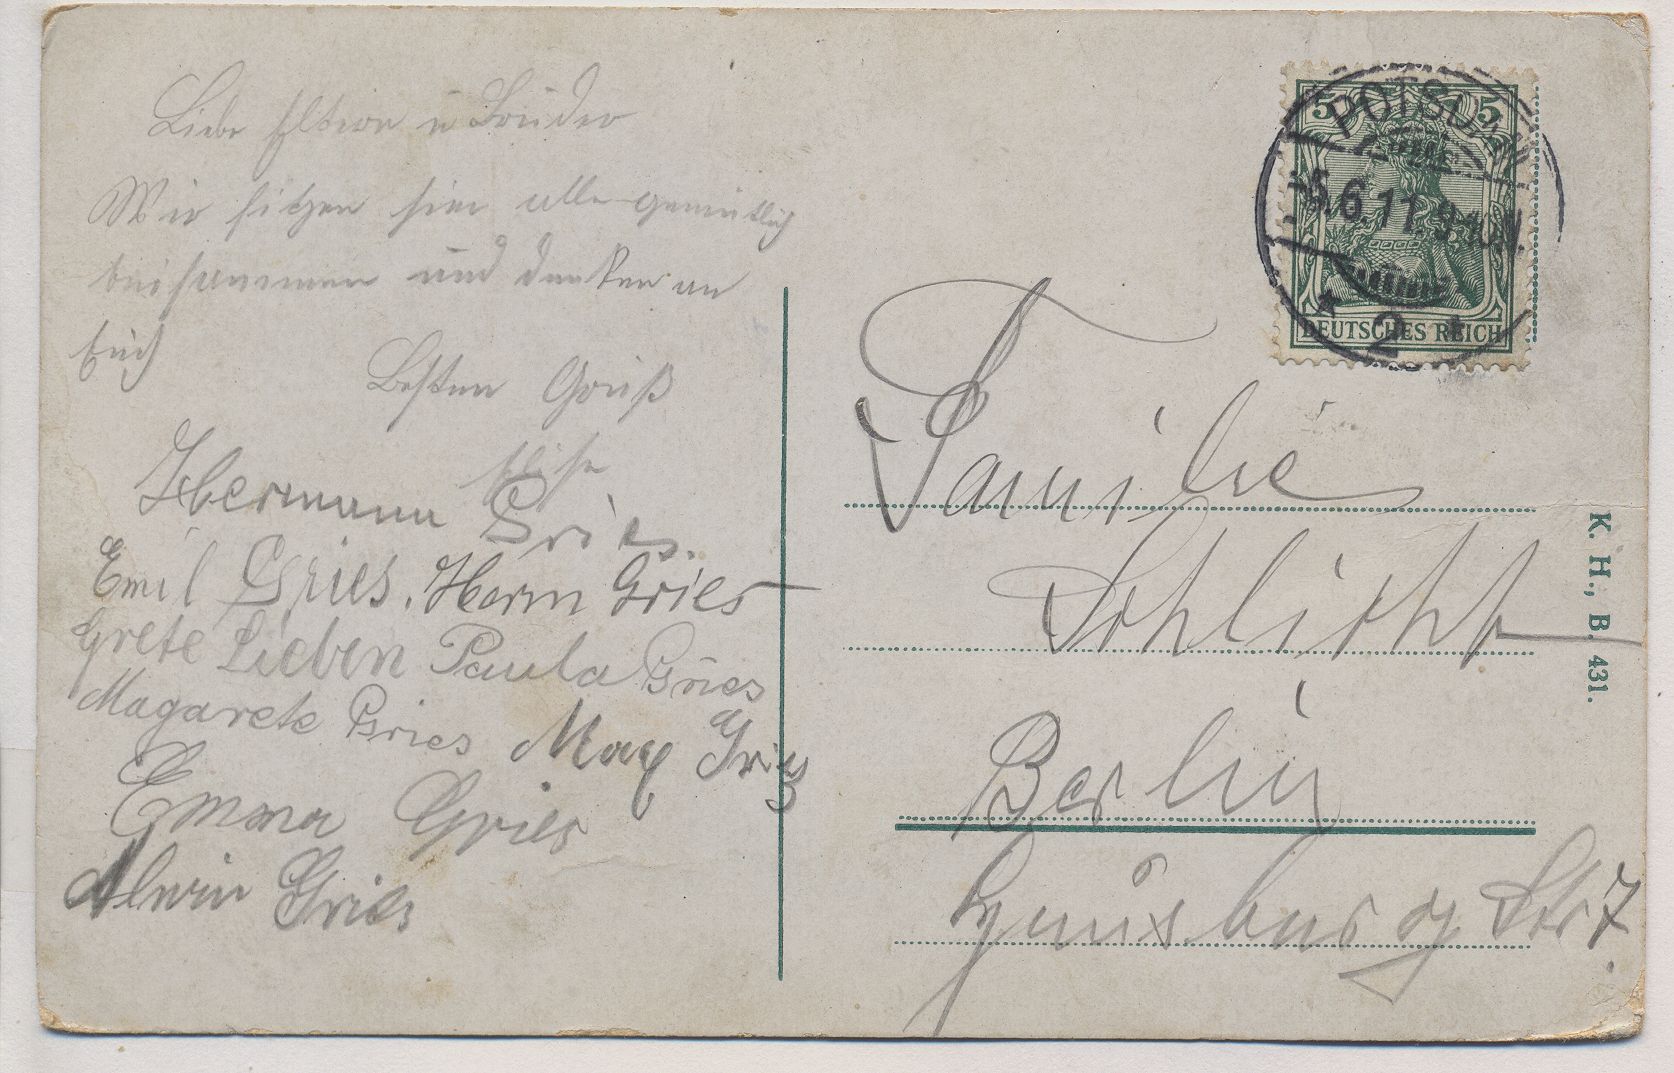 Liebe Eltern u Brüder
Wir sitzen hier alle gemütlich
beisammen und denken an
Euch
Besten Gruß
Elise
Hermann Gries.
Emil Gries. Herm Gries
Grete Lieben Paula Gries
Magarete Gries Max Gries
Emma Gries
Alwin Gries
5 5
POTSDAM
5.6.11. 9-10N.
* 2 *
DEUTSCHES REICH
Familie
Schlicht
Berlin
Str 7.
K. H., B. 431.